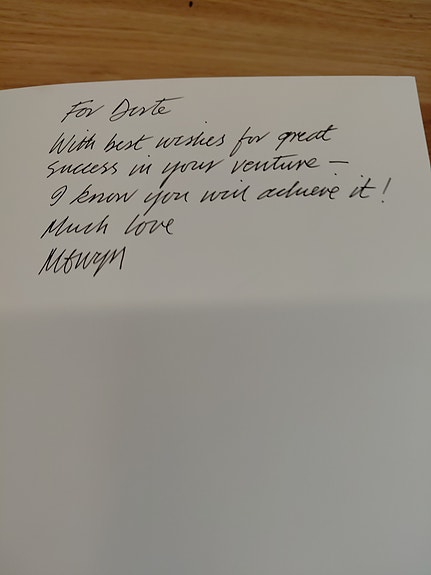 For Dorte
With best wishes for great
success in your venture –
I know you will achieve it!
Much love